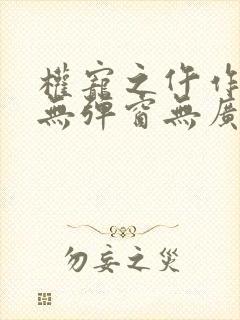 權寵之仵作
無彈窗無廣
勿妄之災